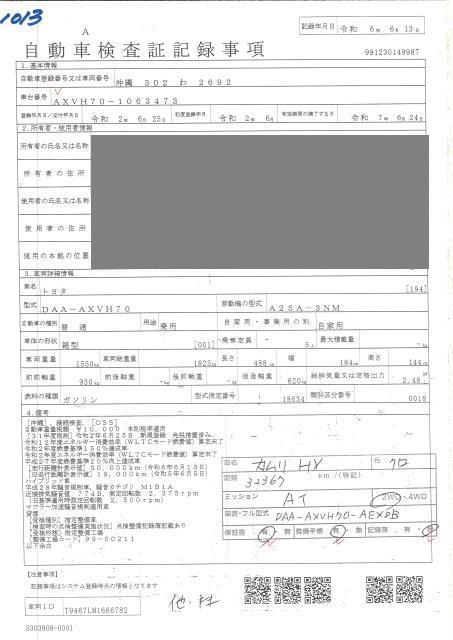 1013
A
記録年月日 令和 6年 6月 13日
自動車検査証記録事項
991230149987
1.基本情報
自動車登録番号又は車両番号 沖縄 302 わ 2692
車台番号 AXVH70-1063473
登録年月日/交付年月日 令和 2年 6月 25日 初度登録年月 令和 2年 6月 有効期間の満了する日 令和 7年 6月 24日
2.所有者・使用者情報
所有者の氏名又は名称
所有者の住所
使用者の氏名又は名称
使用者の住所
使用の本拠の位置
3.車両詳細情報
車名 トヨタ [194]
型式 DAA-AXVH70 原動機の型式 A25A-3NM
自動車の種別 普通 用途 乗用 自家用・事業用の別 自家用
車体の形状 箱型 [001] 乗車定員 5人 最大積載量 -kg
車両重量 1550kg 車両総重量 1825kg 長さ 488cm 幅 184cm 高さ 144cm
前前軸重 930kg 前後軸重 -kg 後前軸重 -kg 後後軸重 620kg 総排気量又は定格出力 2.48L
燃料の種類 ガソリン 型式指定番号 18634 類別区分番号 0018
4.備考
[沖縄],継続検査,[OSS]
自動車重量税額 ¥10,000 本則税率適用
令和2年度燃費基準150%達成車
平成27年度燃費基準20%向上達成車
[走行距離計表示値] 30,000km (令和6年6月13日)
[旧走行距離計表示値] 19,000km (令和5年6月8日)
ハイブリッド車
平成28年騒音規制車,騒音カテゴリ M1B1A
近接排気騒音値 77dB,測定回転数 2,375rpm
(旧基準適用時測定回転数 2,500rpm)
マフラー加速騒音規制適用車
[受検種別] 指定整備車
[検査時の点検整備実施状況] 点検整備記録簿記載あり
[受検形態] 指定整備工場
[整備工場コード] 99-00211
以下余白
車名 カムリ HV 色 クロ
距離 32367 km /(特記)
ミッション AT 2WD・4WD
型式・フル型式 DAA-AXVH70-AEXDB
保証書 有・無 整備手帳 有・無 記録簿 有・無
[注意事項]
記録事項はシステム登録時点の情報となります
車両ID T9467LM1666782
5303908-0001